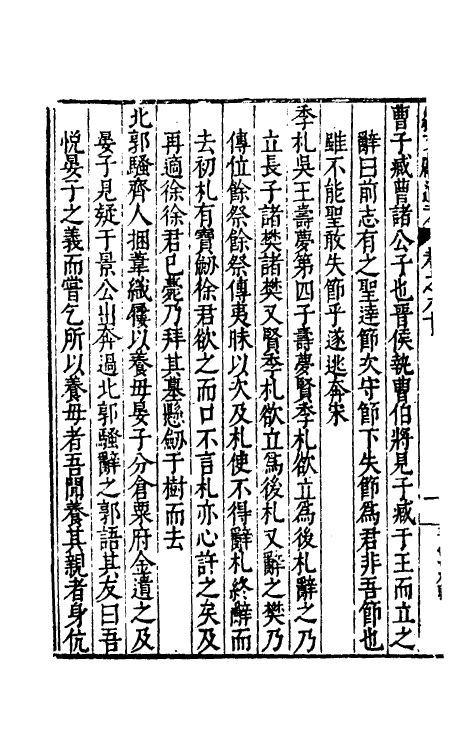 曹子臧曹諸公子也晉侯執曹伯將見子臧于王而立之
辭曰前志有之聖達節次守節下失節爲君非吾節也
雖不能聖敢失節乎遂逃奔宋
季札吳王壽夢第四子壽夢賢季札欲立爲後札辭之乃
立長子諸樊諸樊又賢季札欲立爲後札又辭之樊乃
傳位餘祭餘祭傳夷昧以次及札使不得辭札終辭而
去初札有寶劒徐君欲之而口不言札亦心許之矣及
再適徐徐君已薨乃拜其墓懸劒于樹而去
北郭騷齊人捆葦織屨以養母晏子分倉粟府金遺之及
晏子見疑于景公出奔過北郭騷辭之郭語其友曰吾
悅晏子之義而嘗乞所以養母者吾聞養其親者身伉